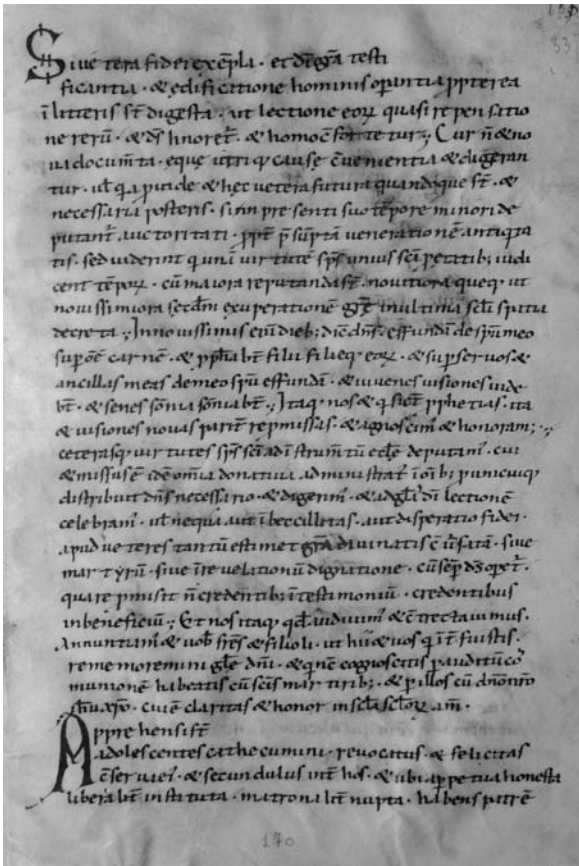 Sive tera fidei exēpla · et dī grā testi
ficantia · & edificatione hominis opantia ppterea
ī litteris st̄ digesta · ut lectione eoꝝ quasi repensatio
ne rerū · & ds̄ honoret᷑ · & homo
Cur n̄ & no
va documta · eque utriq cause cvenientia & digeran
tur · ul̄ qa pinde & hec vetera futura quandoque st̄ · &
necessaria posteris · si in presenti suo tēpore minori de
putant᷑ auctoritati · ppt̄ psūptā venerationē antiqta
tis · sed viderint qi unā virtutē sps̄ unius sc̄i p etatib; iudi
cent tēpoꝝ · cū maiora reputanda st̄ · novitiora queq ut
novissimiora secdm exuperationē grē in ultima scl̄i spatia
decreta · In novissimis eni dieb; dic dns̄ · effundā de spū meo
sup ōē carnē · & pphabt̄ filii filieq eoꝝ · & sup servos &
ancillas meas de meo spū effundā · & iuvenes visiones vide
bt̄ · & senes sōnia sōniabt̄ · Itaq nos & q sicut pphetias · ita
& visiones novas parit̄ repmissas · & agnoscim᷑ & honoram᷑ ;
ceterasq virtutes sps̄ sc̄i ad īstrumtū eccl̄e deputam᷑ · cui
& missus ē idē omīa donativa administrat᷑ ī oīb; p unicuiq
distribuit dns̄ necessario · & digerim᷑ · & ad glā dī lectionē
celebram᷑ · ul̄ ne qua aut ībecillitas · aut disperatio fidei ·
apud veteres tantū estimet grā divinatis
sive
martyrū · sive ī revelationū dignatione · cū sēp ds̄ opet᷑ ·
quare pmisit n̄ credentib; ī testimoniū · credentibus
in beneficiū · Et nos itaq qd̄ audivim᷑ & ctrectavimus ·
Annuntiam᷑ & vob̄ frēs & filioli · ut hii & vos qi it̄fuistis ·
rememoremini glē dnī · & q nc̄ cognoscitis p auditū co
munionē habeatis cū scīs martirib; · & p illos cū dnō nrō
ihū xpo · cui ē claritas & honor in scl̄a scl̄oꝝ am̄ ·
Apprehensi st̄
adolescentes cathecumini · revocatus · & felicitas
cserva ei᷑ · & secundulus int̄ hos · & vibia ppetua honesta
liberalit̄ instituta · matronalit̄ nupta · habens patrē
170
33